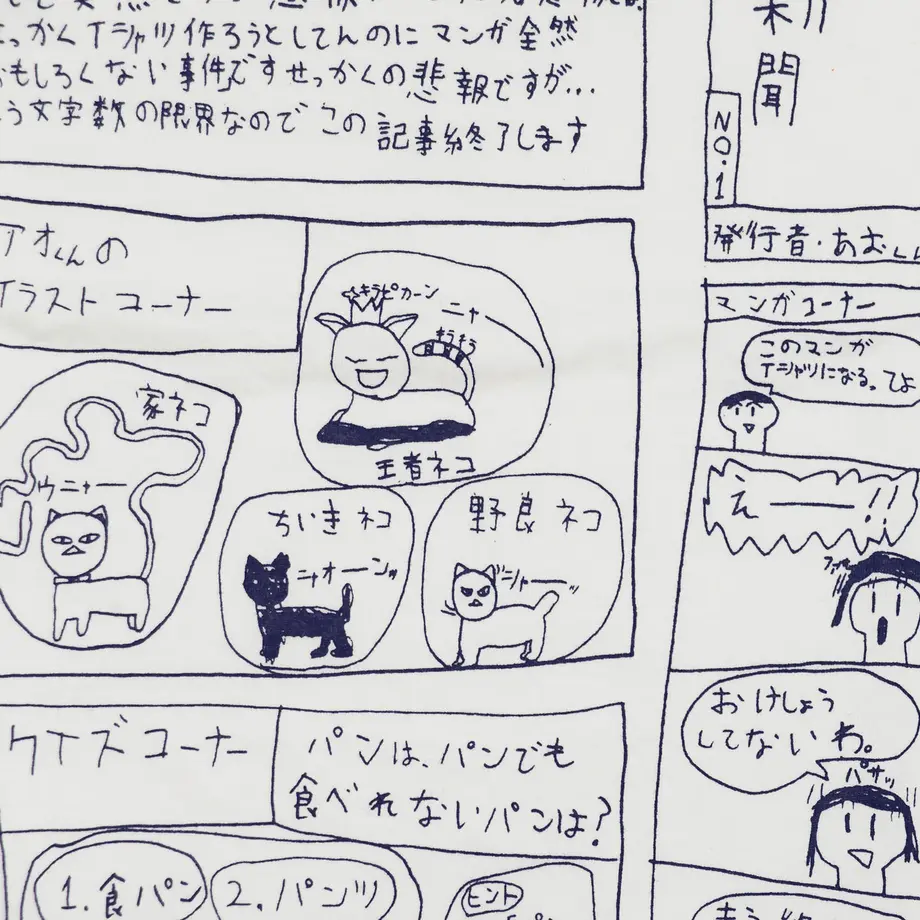 新聞
NO.1
発行者・あお
っかくTシャツ作ろうとしてんのにマンガ全然
おもしろくない事件ですせっかくの悲報ですが…
う文字数の限界なのでこの記事終了します
アオくんの
イラストコーナー
☆キラピカーン
ニャー
キラキラ
王者ネコ
家ネコ
ウニャー
ちいきネコ
ニャオーン
野良ネコ
シャー
マンガコーナー
このマンガ
Tシャツになる。てよ
え———!!
おけしょう
してないわ。
パサッ
クイズコーナー
パンは、パンでも
食べれないパンは?
1.食パン
2.パンツ
ヒント